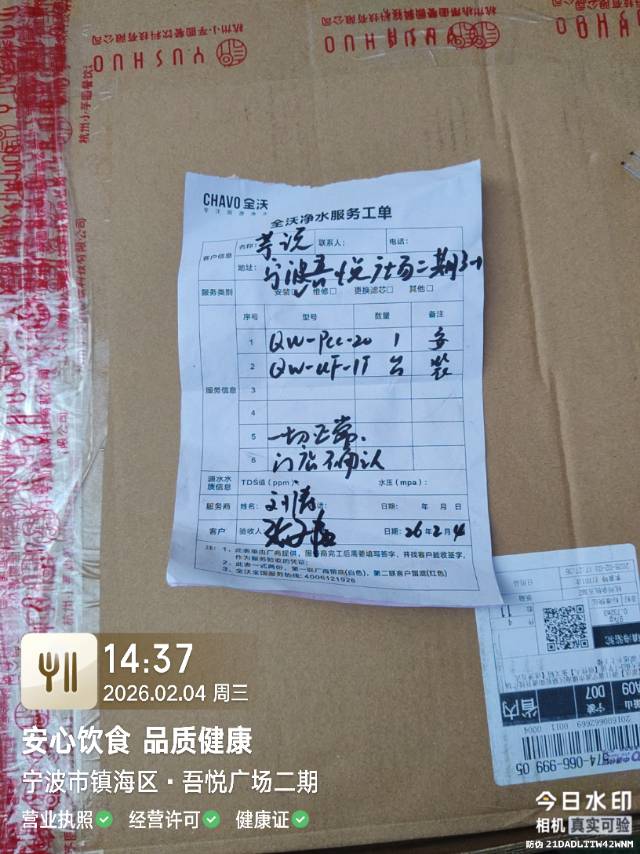 杭州小芋圆餐饮科技有限公司
YUSHUO
CHAVO 全沃
全沃净水服务工单
客户信息
名称: 芋说 联系人: 电话:
地址: 宁波吾悦广场二期3-1
服务类别 安装□ 维修□ 更换滤芯□ 其他□
服务信息
序号 型号 数量 备注
1 QW-PCC-20 1 安
2 QW-UF-1T 台 装
3
4
5 一切正常.
6 门店确认
源水水质信息 TDS值(ppm) 水压(mpa):
服务商 姓名: 刘涛 日期: 年 月 日
客户 验收人: 日期: 26.2.4
注: 1、此表单由厂商提供,服务商完工后需要填写签字,并找客户验收签字,
作为服务验收的凭证.
2、此表一式两份,第一联厂商留底(白色),第二联客户留底(红色)
3、全沃全国服务热线:4006121926
A09
D07
宁波
省内
974-066-999 05
14:37
2026.02.04 周三
安心饮食 品质健康
宁波市镇海区·吾悦广场二期
营业执照 经营许可 健康证
今日水印
相机 真实可验
防伪 21DADLTTW42WNM